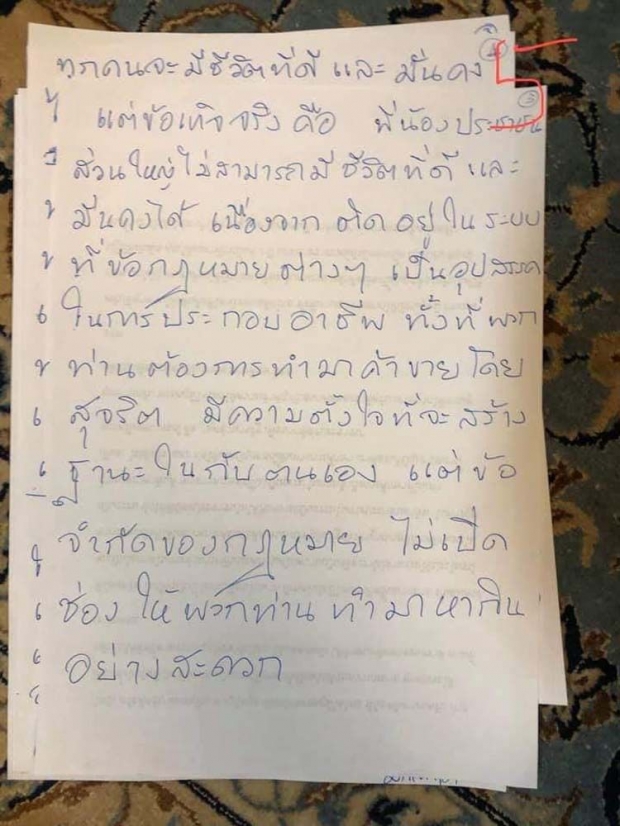 ทุกคนจะมีชีวิตที่ดี และ มั่นคง
แต่ข้อเท็จจริง คือ พี่น้องประชาชน
ส่วนใหญ่ไม่สามารถมีชีวิตที่ดี และ
มั่นคงได้ เนื่องจาก ติดอยู่ใน ระบบ
ที่ข้อกฎหมายต่างๆ เป็นอุปสรรค
ในการประกอบอาชีพ ทั้งที่พวก
ท่านต้องการทำมาค้าขายโดย
สุจริต มีความตั้งใจที่จะสร้าง
ฐานะในกับตนเอง แต่ข้อ
จำกัดของกฎหมาย ไม่เปิด
ช่องให้พวกท่านทำมาหากิน
อย่างสะดวก